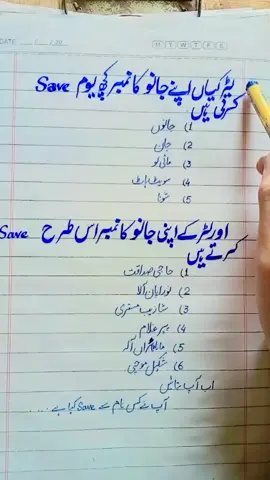 DATE
M T W T F S
لڑکیاں اپنے جانو کا نمبر کچھ یوں Save
کرتی ہیں
1) جانوں
2) جان
3) مائی لو
4) سویٹ ہارٹ
5) شونا
اور لڑکے اپنی جانو کا نمبر اس طرح Save
کرتے ہیں
1) حاجی صداقت
2)
3) مستری
4) غلام
5)
6) شکیل موچی
اب آپ بتائیں
آپ نے کس نام سے Save کیا ہے ....